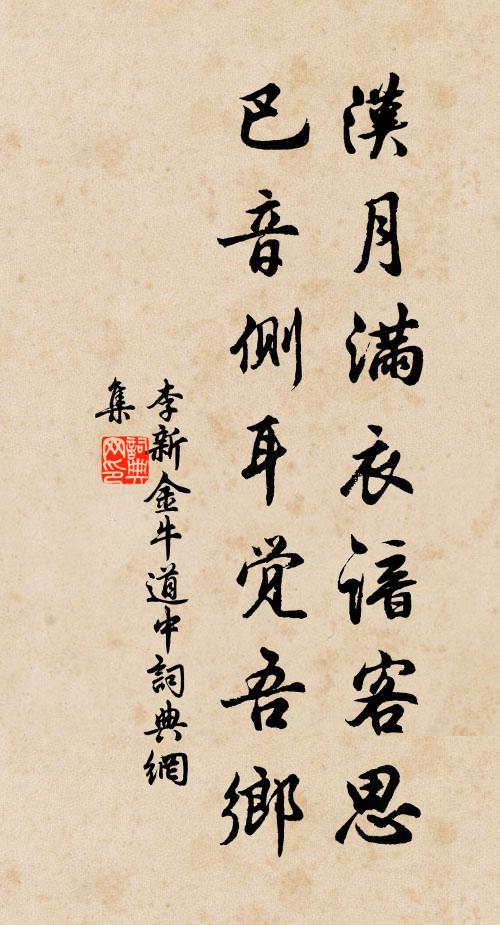 漢月滿衣諳客思
巴音側耳覺吾鄉
李新金牛道中詞典網
集
詞典
网印